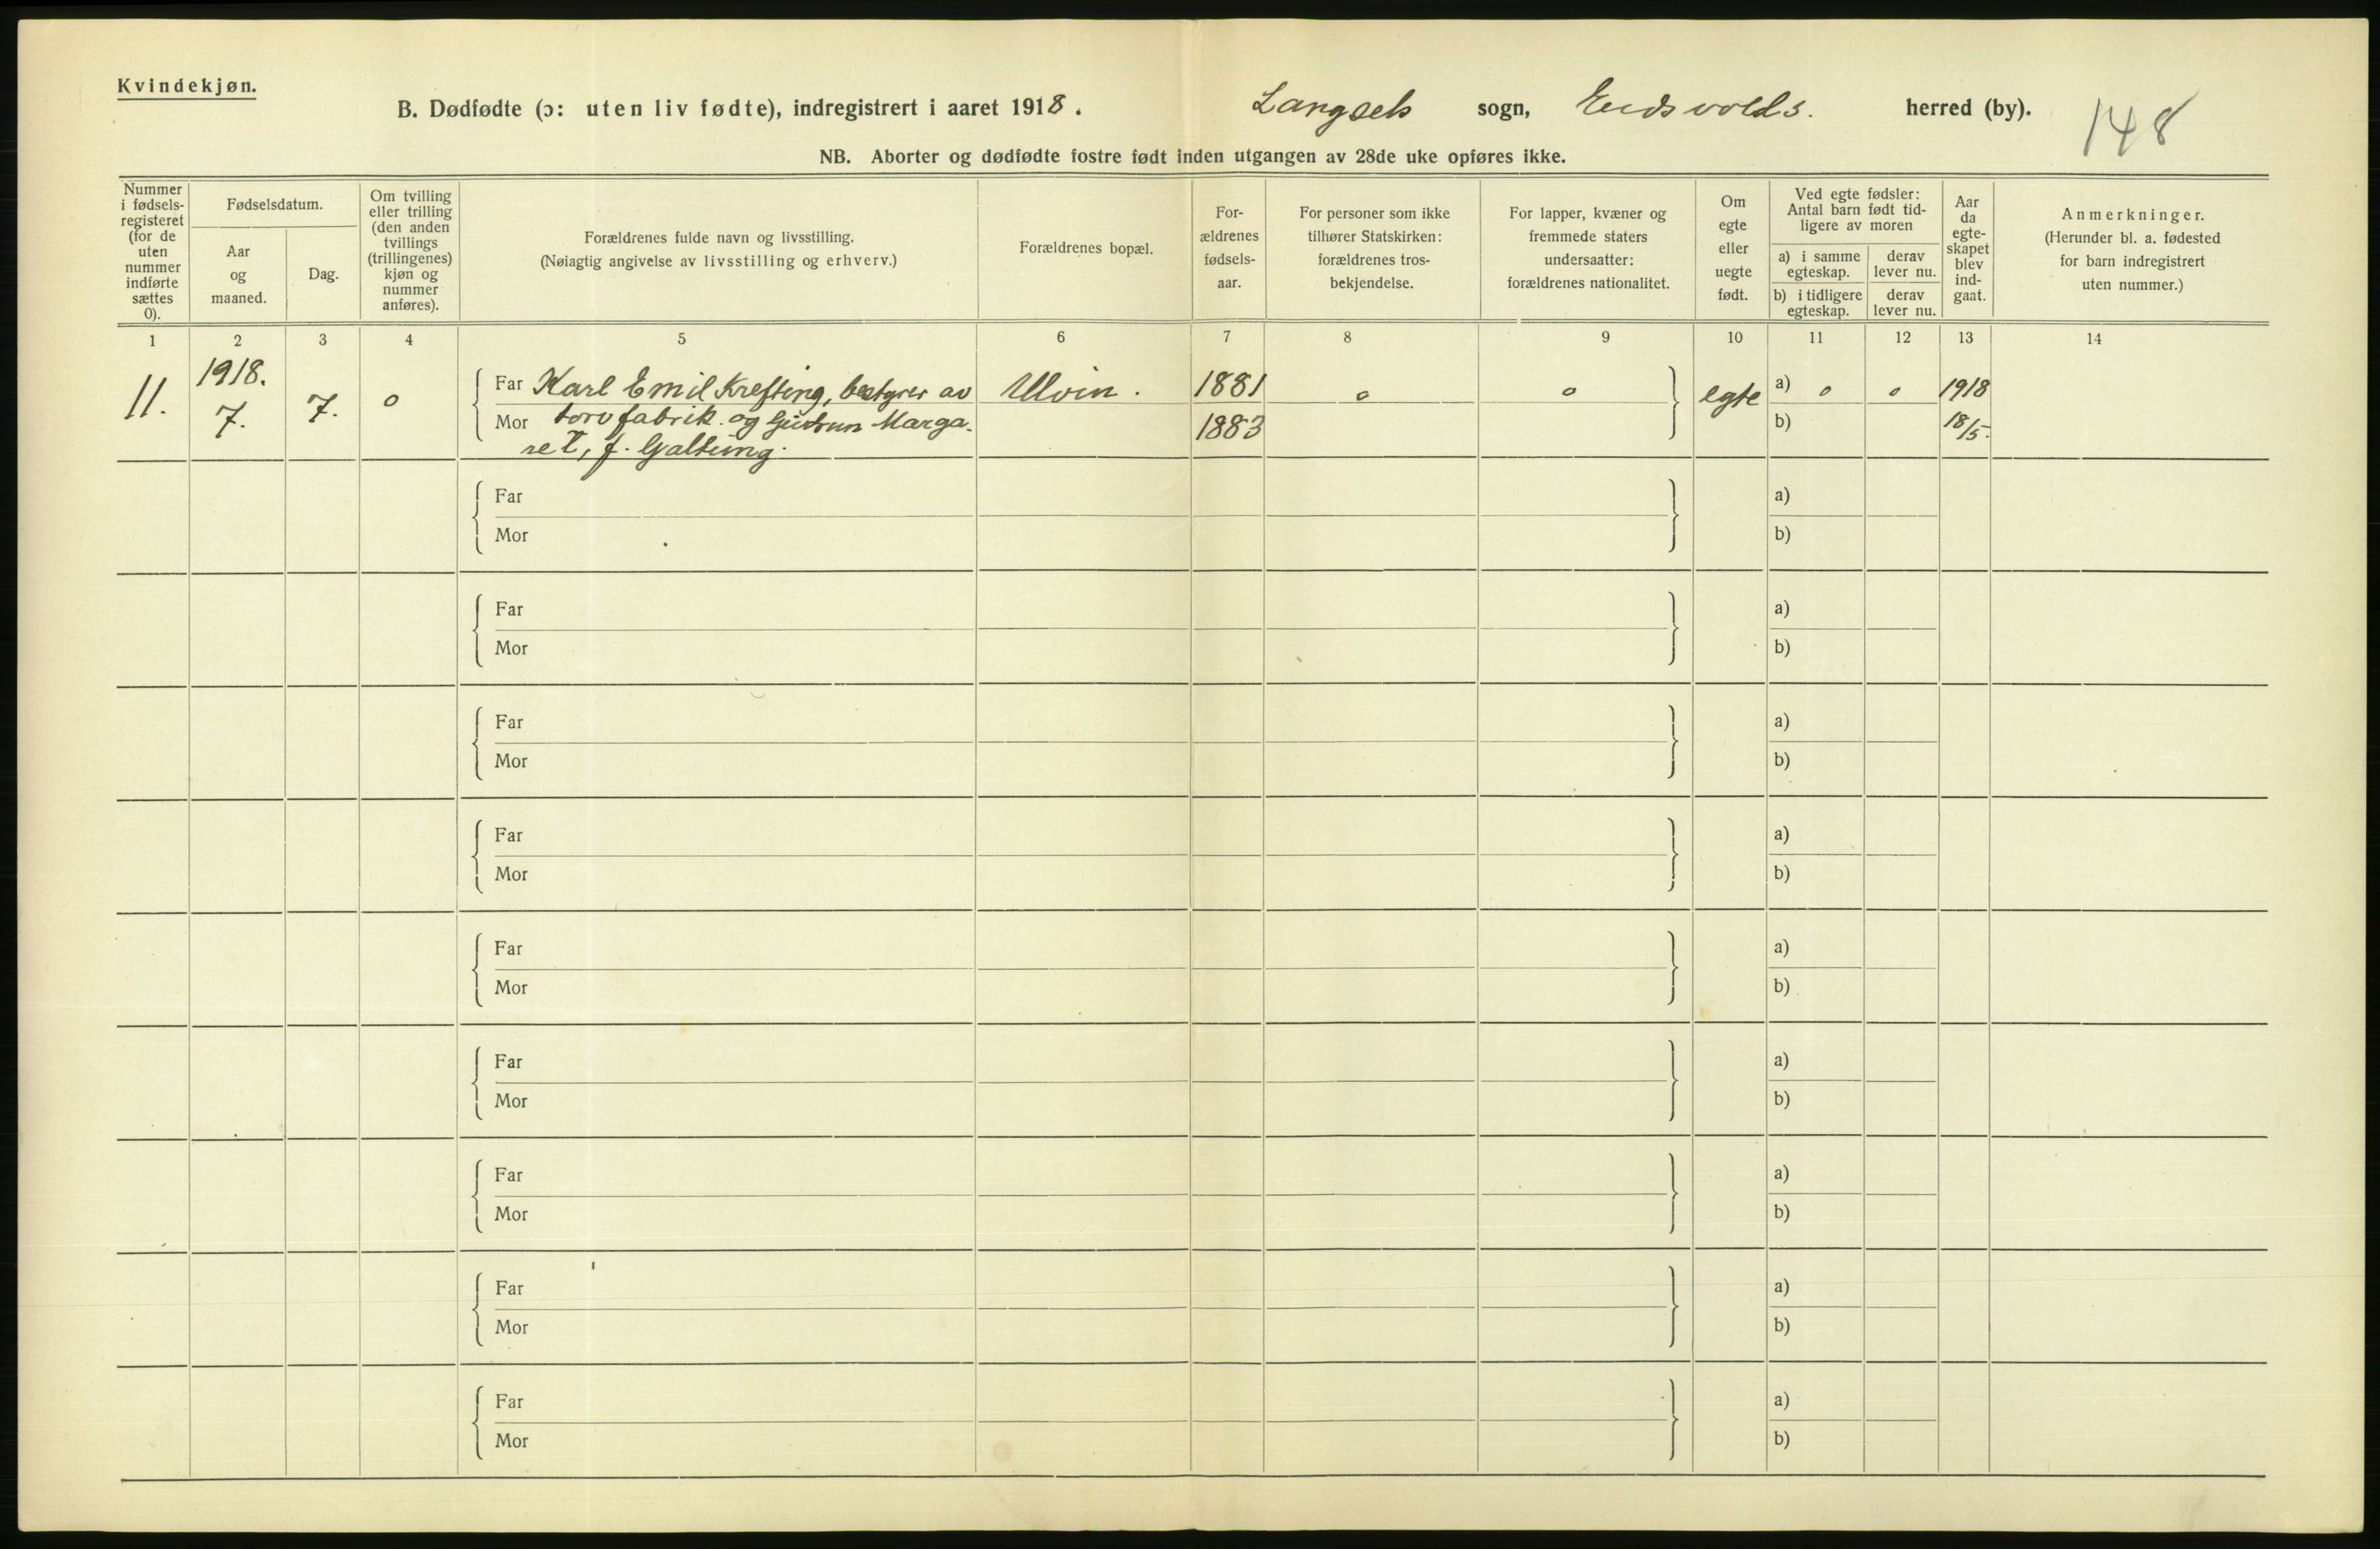 Kvindekjøn.
B. Dødfødte (ɔ: uten liv fødte), indregistrert i aaret 1918. Langsets sogn, Eidsvolds. herred (by). 148
NB. Aborter og dødfødte fostre født inden utgangen av 28de uke opføres ikke.
Nummer
i fødsels-
registeret
(for de
uten
nummer
indførte
sættes
0).
Fødselsdatum.
Aar
og
maaned.
Dag.
Om tvilling
eller trilling
(den anden
tvillings
(trillingenes)
kjøn og
nummer
anføres).
Forældrenes fulde navn og livsstilling.
(Nøiagtig angivelse av livsstilling og erhverv.)
Forældrenes bopæl.
For-
ældrenes
fødsels-
aar.
For personer som ikke
tilhører Statskirken:
forældrenes tros-
bekjendelse.
For lapper, kvæner og
fremmede staters
undersaatter:
forældrenes nationalitet.
Om
egte
eller
uegte
født.
Ved egte fødsler:
Antal barn født tid-
ligere av moren
a) i samme
egteskap.
derav
lever nu.
b) i tidligere
egteskap.
derav
lever nu.
Aar
da
egte-
skapet
blev
ind-
gaat.
Anmerkninger.
(Herunder bl. a. fødested
for barn indregistrert
uten nummer.)
1 2 3 4 5 6 7 8 9 10 11 12 13 14
11.
1918.
7.
7.
0
Far Karl Emil Krefting, bestyrer av
Mor torvfabrik. og Gudrun Marga-
ret, f. Galtung.
Ulvin.
1881
1883
0
0
egte
a) 0 0
b)
1918
18/5.
Far a)
Mor b)
Far a)
Mor b)
Far a)
Mor b)
Far a)
Mor b)
Far a)
Mor b)
Far a)
Mor b)
Far a)
Mor b)
Far a)
Mor b)
Far a)
Mor b)